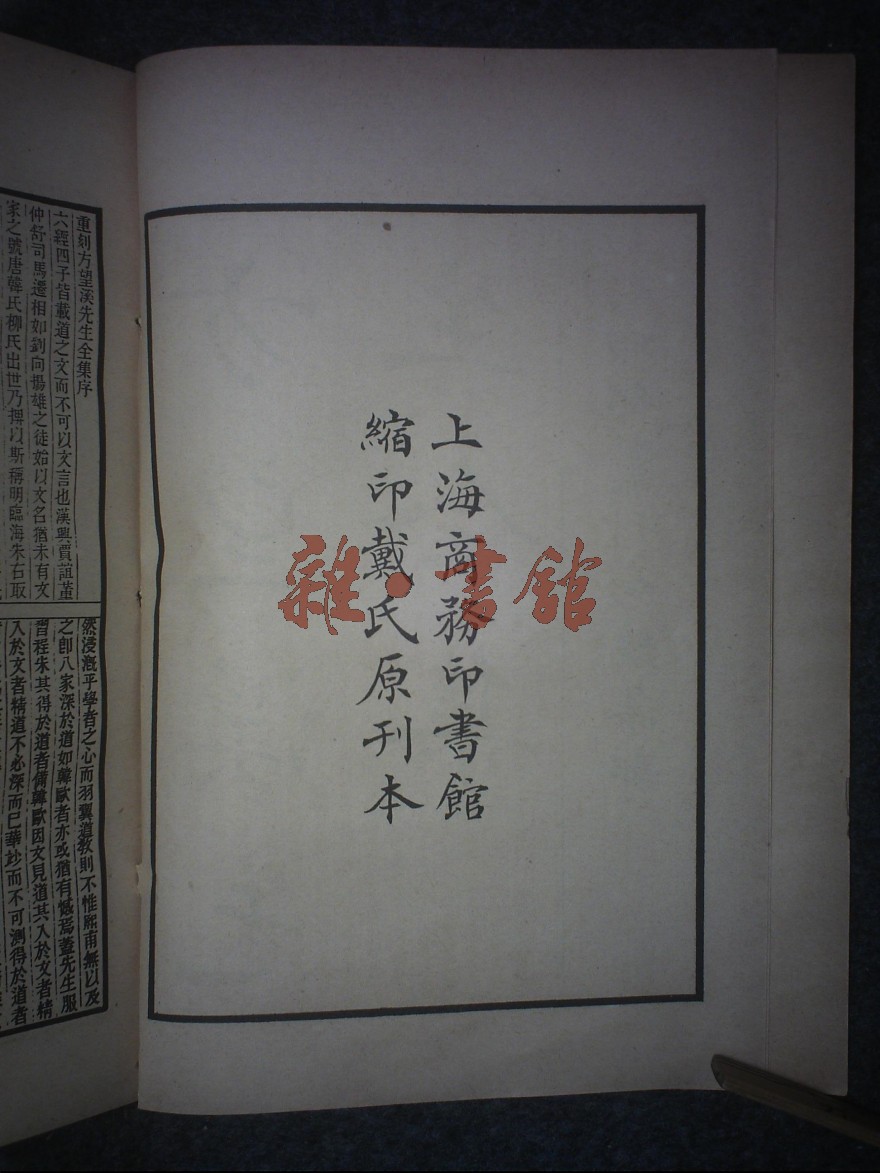 上海商務印書館
縮印戴氏原刊本
雜·書館
重刻方望溪先生全集序
六經四子皆載道之文而不可以文言也漢興賈誼董
仲舒司馬遷相如劉向揚雄之徒始以文名猶未有文
家之號唐韓氏柳氏出世乃撰以斯稱明臨海朱右取
然浸漑乎學者之心而羽翼道敎則不惟熙甫無以及
之卽八家深於道如韓歐者亦或猶有憾焉蓋先生服
習程朱其得於道者備韓歐因文見道其入於文者精
入於文者精道不必深而已華妙而不可測得於道者